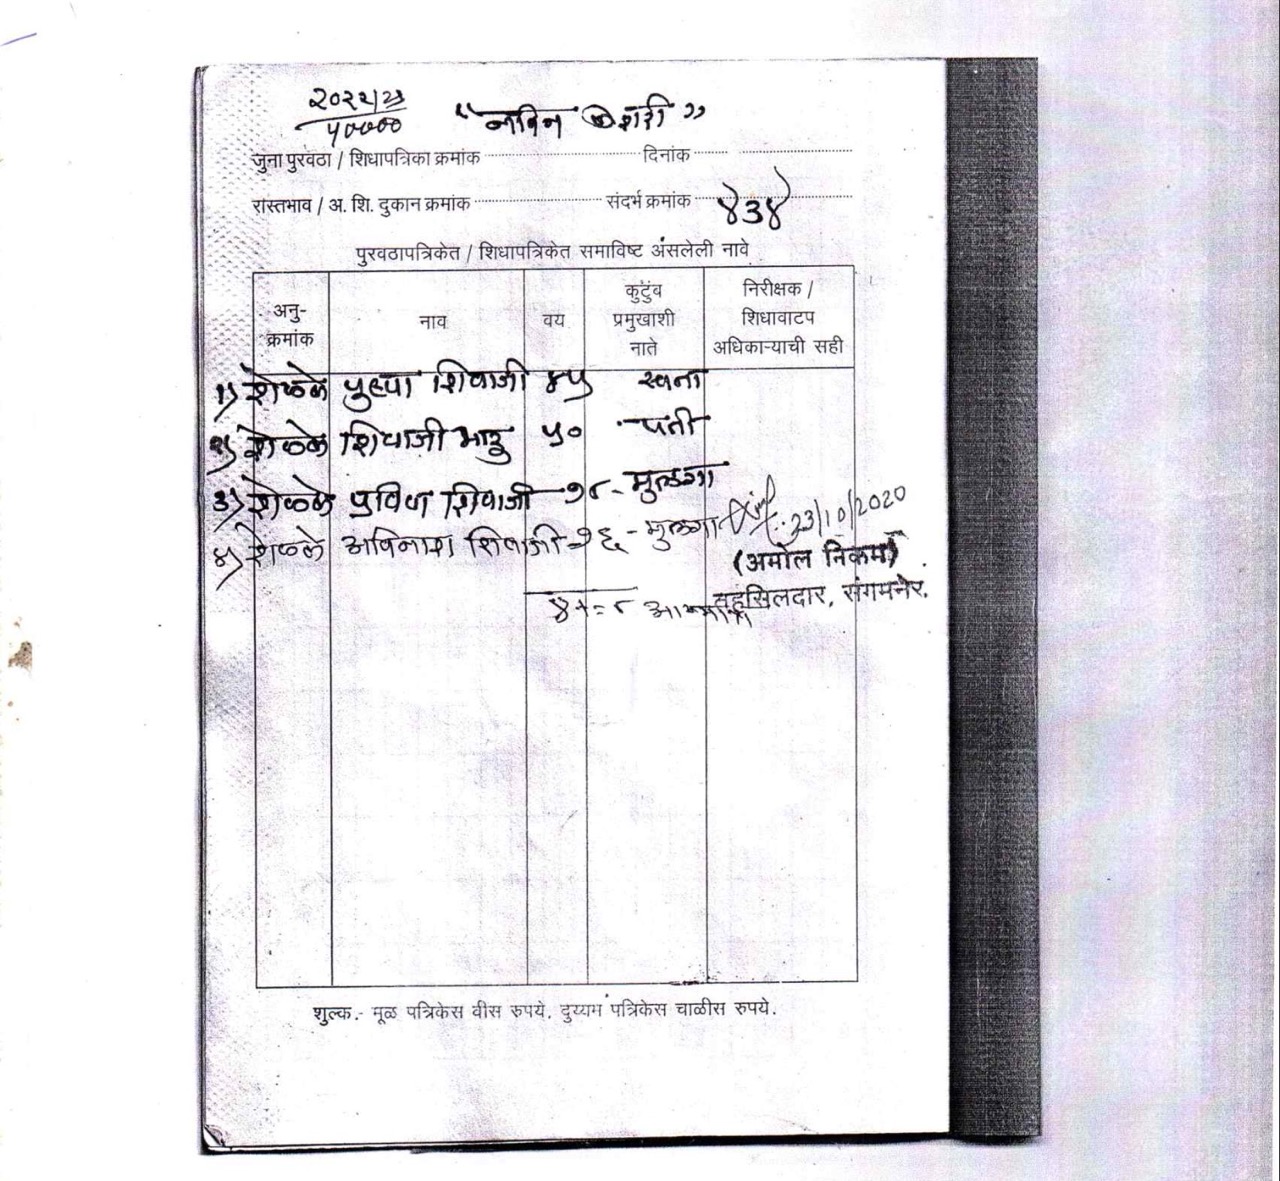 २०२२/२३
५००००
"नविन शिधा"
जुना पुरवठा / शिधापत्रिका क्रमांक दिनांक
रास्तभाव / अ. शि. दुकान क्रमांक संदर्भ क्रमांक ४३४
पुरवठापत्रिकेत / शिधापत्रिकेत समाविष्ट असलेली नावे
अनु-क्रमांक नाव वय कुटुंब प्रमुखाशी नाते निरीक्षक / शिधावाटप अधिकाऱ्याची सही
१) शेळके पुष्पा शिवाजी ४५ स्वता
२) शेळके शिवाजी भाऊ ५० पती
३) शेळके प्रविण शिवाजी २८ मुलगा
४) शेळके अविनाश शिवाजी २६ मुलगा
23/10/2020
(अमोल निकम)
तहसिलदार, संगमनेर.
शुल्क.- मूळ पत्रिकेस वीस रुपये, दुय्यम पत्रिकेस चाळीस रुपये.